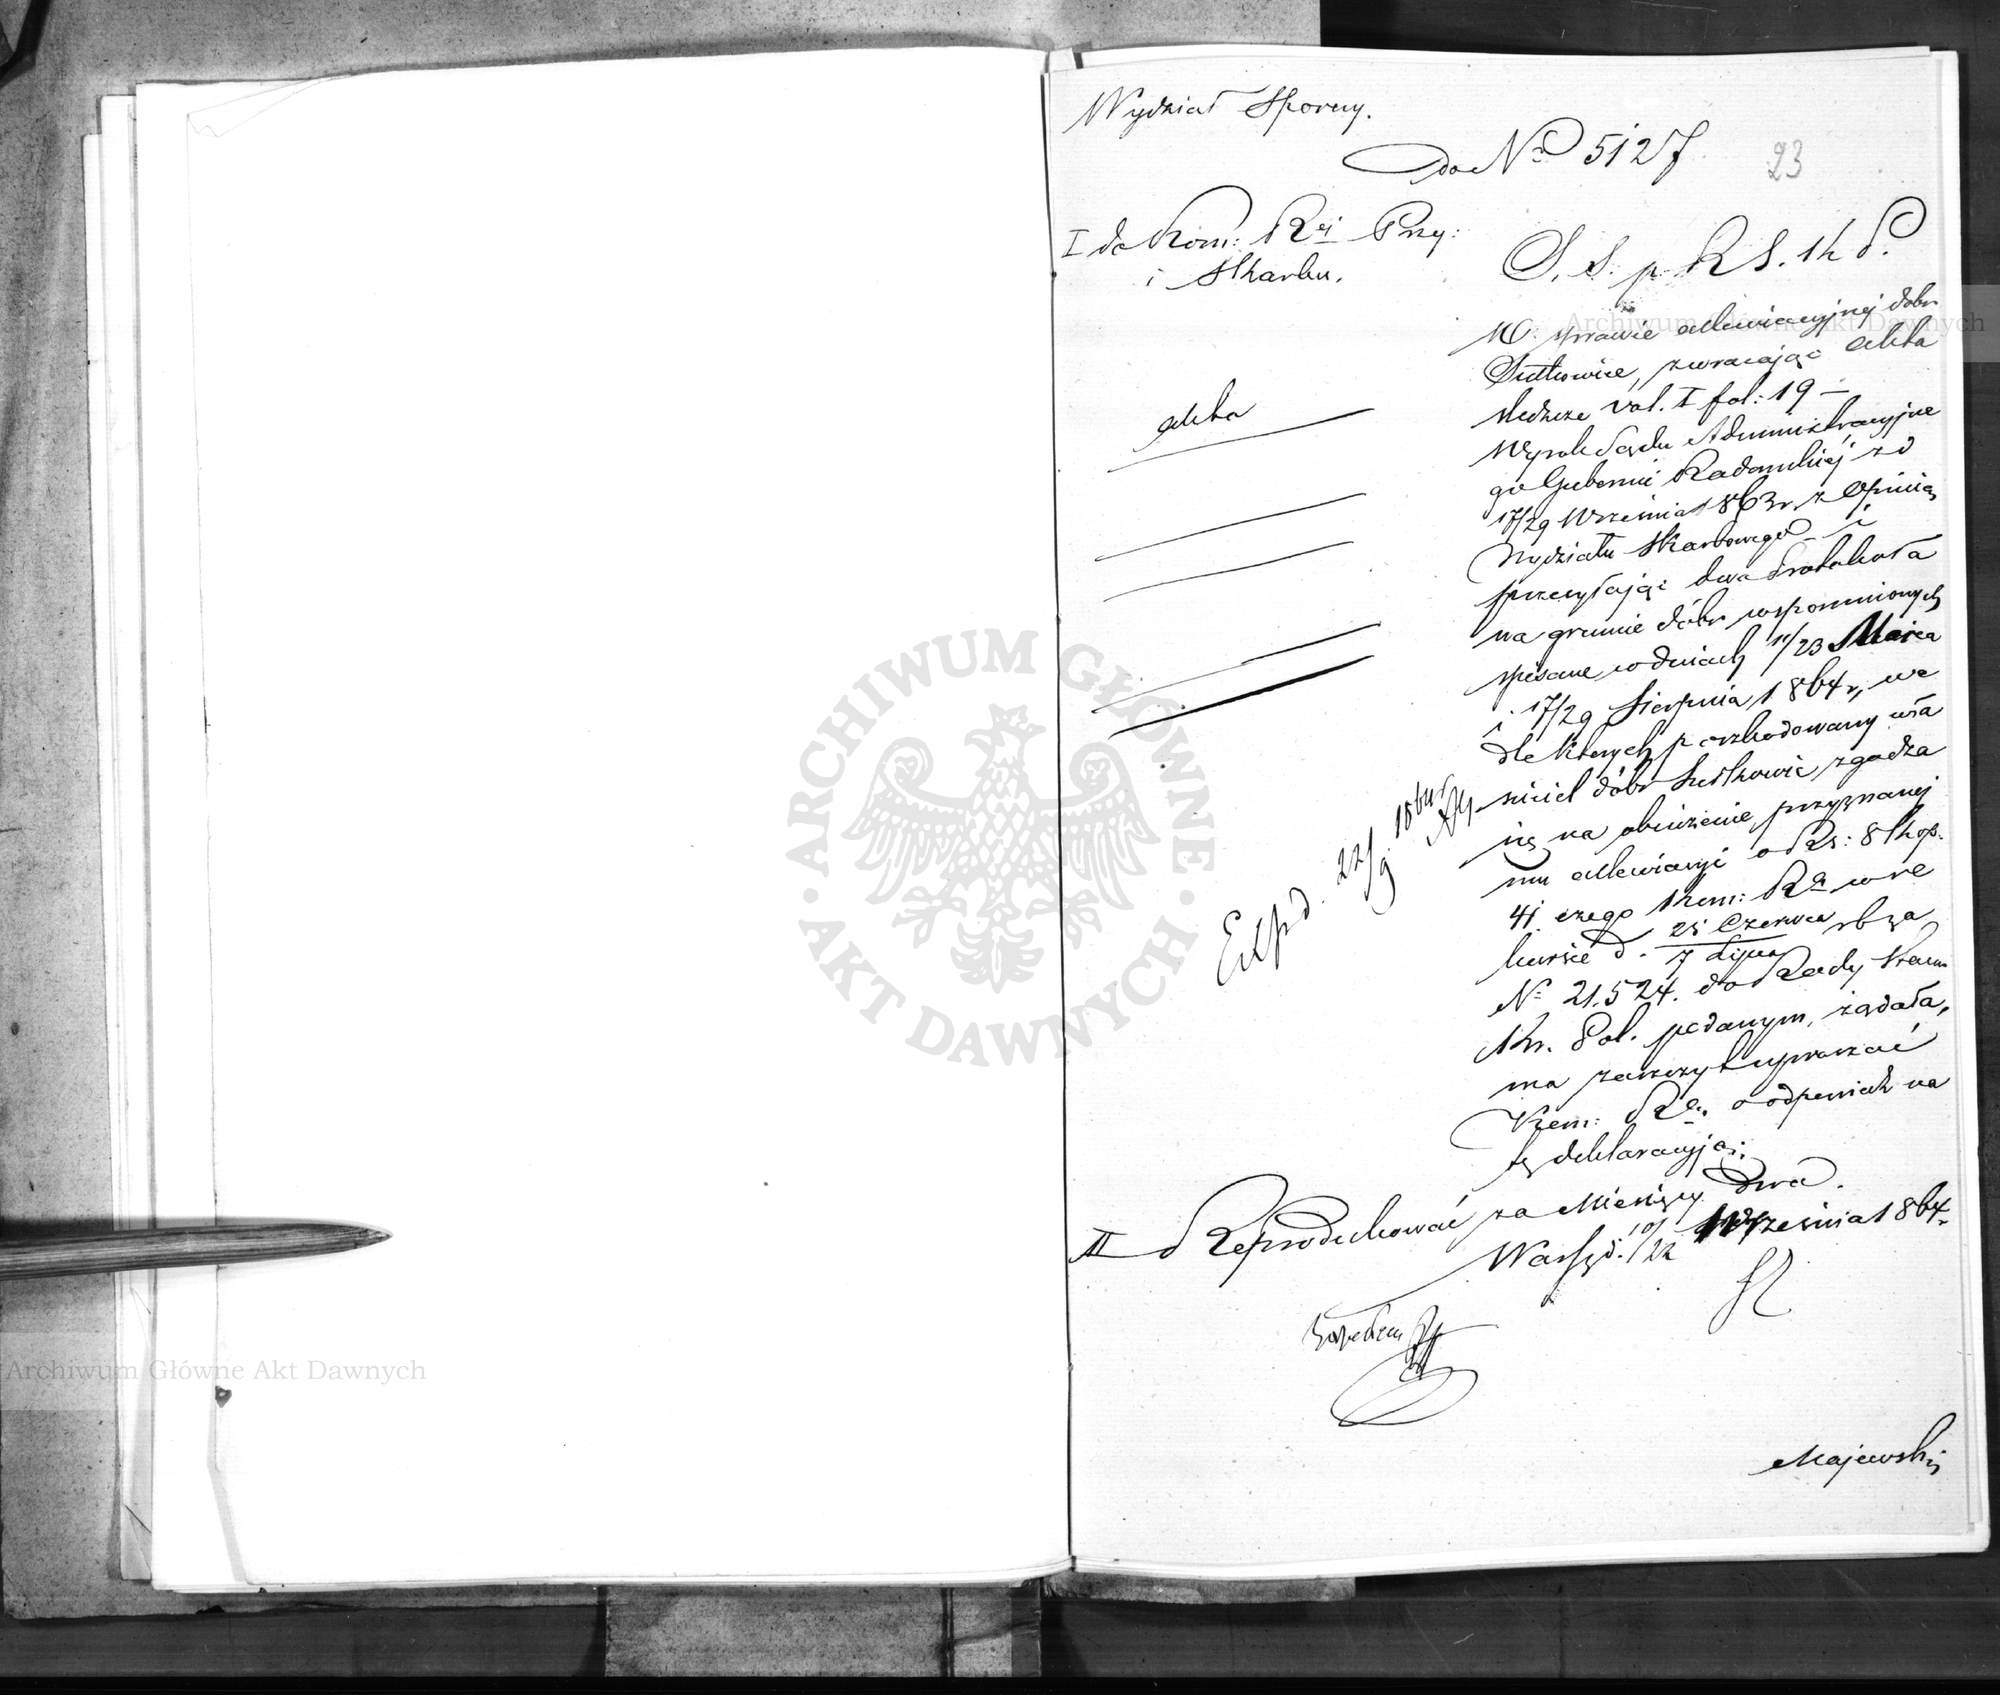 Wydział Sporny.
do Nº 5127
23
I do Kom: Rei Przy:
i Skarbu.
S. S. p. R S. Kr P.
W sprawie allewiacyjnej dóbr
Sułkowice, zwracając akta
śledcze Vol. I fol: 19 —
akta
Wyrok Sądu Administracyjne
go Gubernii Radomskiej z d
17/29 Września 1863 r. z Opinią
Wydziału Skarbowego — i
przesyłając dwa Protokoła
na gruncie dóbr wspomnionych
spisane w dniach 11/23 Marca
i 17/29 Sierpnia 1864 r, we
dle których poszkodowany wła
ściciel dóbr Sułkowic zgadza
się na obniżenie przyznanej
mu allewiacyi o Rs: 8 kop:
41 czego Kom: Ra w re
kursie d. 25 Czerwca / 7 Lipca rb za
Nº 21.524. do Rady Stanu
Kr. Pol. podanym, żądała,
ma zaszczyt upraszać
Kom: Rą o odpowiedź na
tę deklaracyją.
Exped. 22/9
II Reprodukować za Miesięcy Dwa.
Warsz d. 10/22 Września 1864 r
Majewski
Archiwum Główne Akt Dawnych
Archiwum Główne Akt Dawnych
ARCHIWUM GŁÓWNE • AKT DAWNYCH •